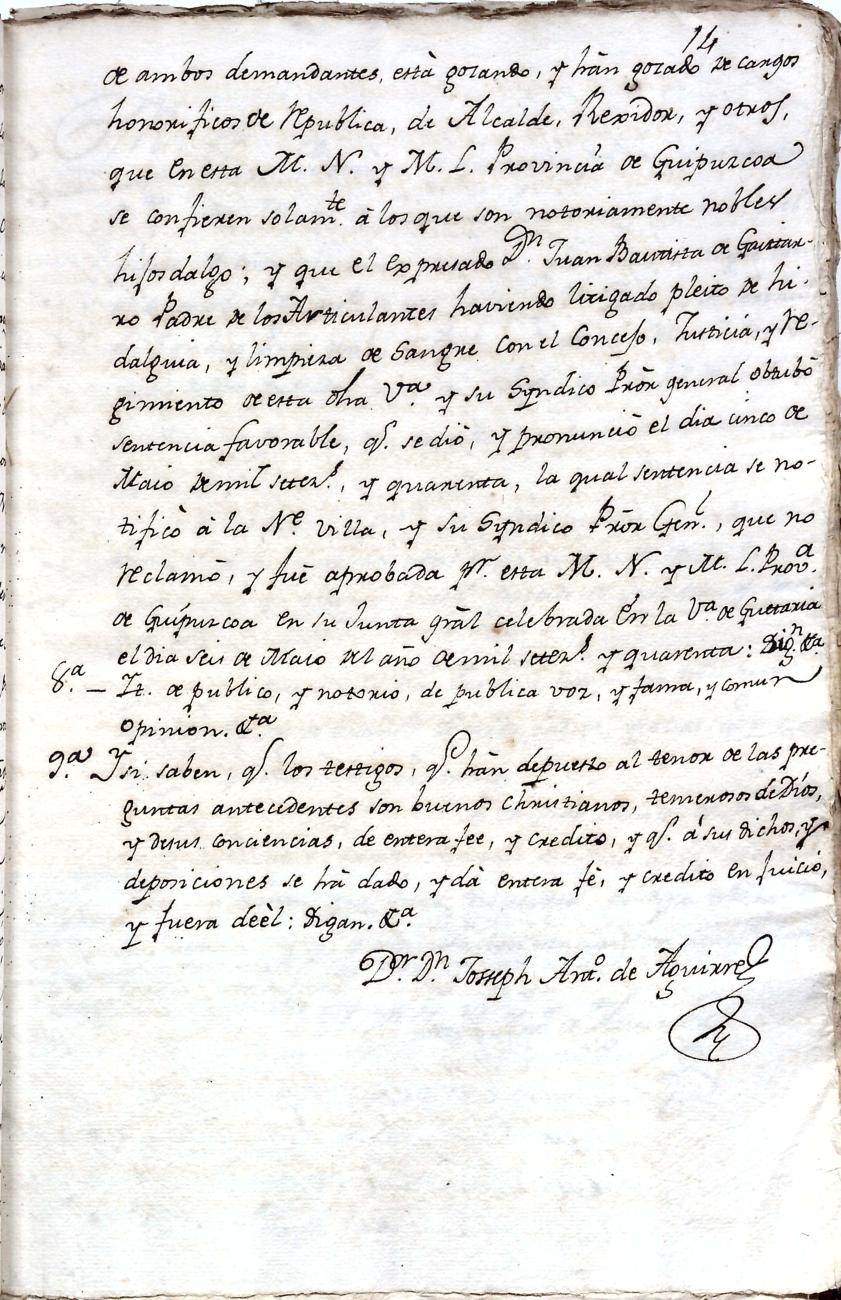 14
de ambos demandantes, està gozando, y hàn gozado de cargos
honorificos de republica, de Alcalde, Rexidor, y otros,
que en esta M. N. y M. L. Provincia de Guipuzcoa
se confieren solamte. à los que son notoriamente nobles
hijosdalgo; y que el expresado Dn. Juan Bautista de Gaztar-
ro Padre de los Articulantes haviendo litigado pleito de hi-
dalguia, y limpieza de sangre con el Concejo, Justicia, y Re-
gimiento de esta dha Va. y su Syndico Prõr general obtubò
sentencia favorable, q. se diò, y pronunciò el dia cinco de
Maio de mil setezs., y quarenta, la qual sentencia se no-
tificò à la Ne. villa, y su Syndico Prõr Gen., que no
reclamò, y fuè aprobada pr. esta M. N. y M. L. Prova.
de Guipuzcoa en su Junta grãl celebrada en la Va. de Guetaria
el dia seis de Maio del año de mil setezs. y quarenta: Dign. &a.
8.a – It. de publico, y notorio, de publica voz, y fama, y comun
opinion. &a.
9.a Y si saben, q. los testigos, q. hàn depuesto al tenor de las pre-
guntas antecedentes son buenos Christianos, temerosos de Dios,
y de sus conciencias, de entera fee, y credito, y q. à sus dichos, y
deposiciones se hà dado, y dà entera fè, y credito en Juicio,
y fuera de èl: Digan. &a.
Dr. Dn. Joseph Anto. de Aguirre